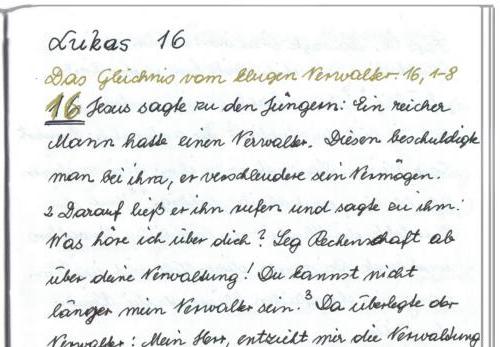 Lukas 16
Das Gleichnis vom klugen Verwalter 16, 1-8
16 Jesus sagte zu den Jüngern: Ein reicher
Mann hatte einen Verwalter. Diesen beschuldigte
man bei ihm, er verschleudere sein Vermögen.
2 Darauf ließ er ihn rufen und sagte zu ihm:
Was höre ich über dich? Leg Rechenschaft ab
über deine Verwaltung! Du kannst nicht
länger mein Verwalter sein. 3 Da überlegte der
Verwalter: Mein Herr, entzieht mir die Verwaltung